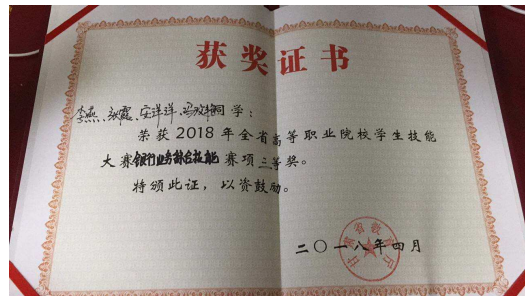 获奖证书
李燕、张霞、安洋洋、冯 同学：
荣获2018年全省高等职业院校学生技能
大赛银行业务综合技能赛项三等奖。
特颁此证，以资鼓励。
二〇一八年四月